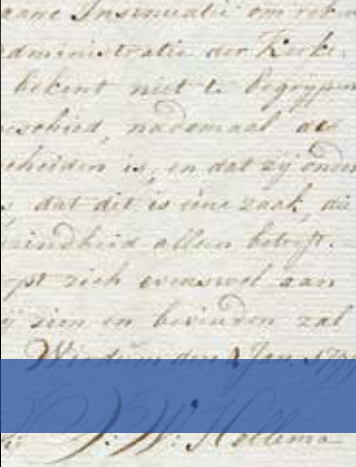 aane Insinuatie om reke
administratie der Kerke.
bekent niet te begrijpen
geschied, nademaal de
scheiden is, en dat zij onder
dat dit is eene zaak, die
allen betreft.
zich evenswel aan
zien en bevinden zal
Wierdum den 1 Jan. 179
J: W: Hollema